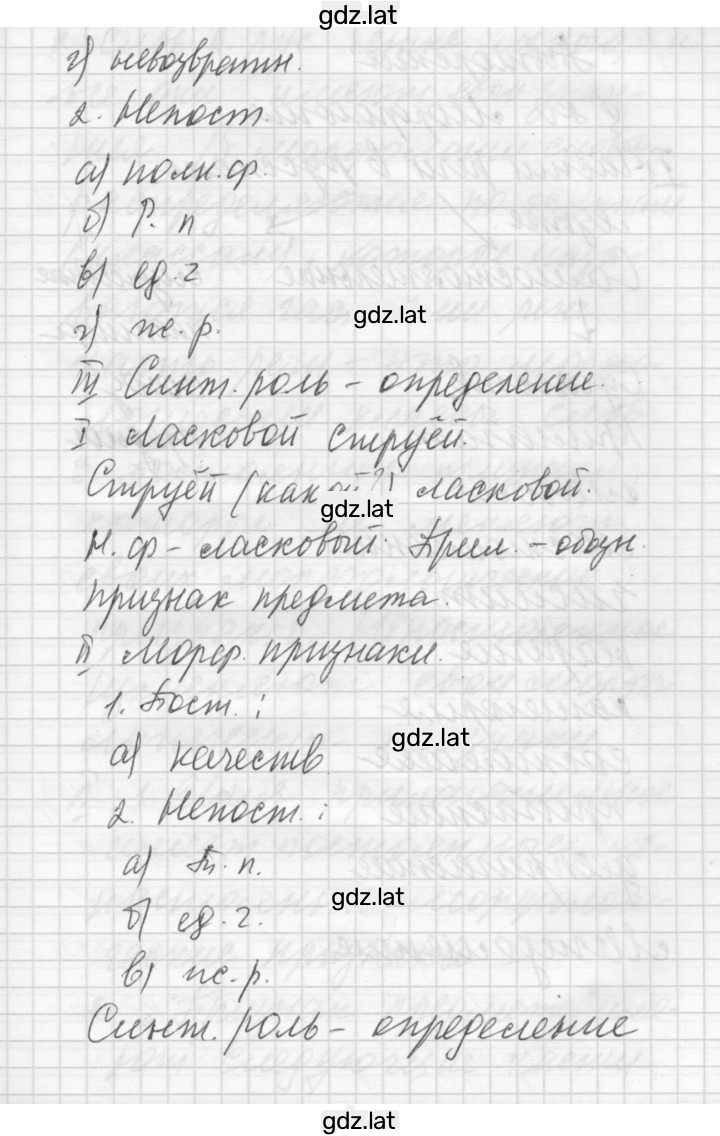 gdz.lat
г) невозвратн.
2. Непост.
а) полн.ф.
б) Р. п
в) ед. ч
gdz.lat
г) ж. р.
III Синт. роль - определение.
I Ласковой струёй.
Струёй (какой?) ласковой.
gdz.lat
Н. ф - ласковый. Прил. - обозн.
признак предмета.
II Морф. признаки.
1. Пост. :
gdz.lat
а) качеств.
2. Непост. :
а) Т. п.
gdz.lat
б) ед. ч.
в) ж. р.
Синт. роль - определение
gdz.lat